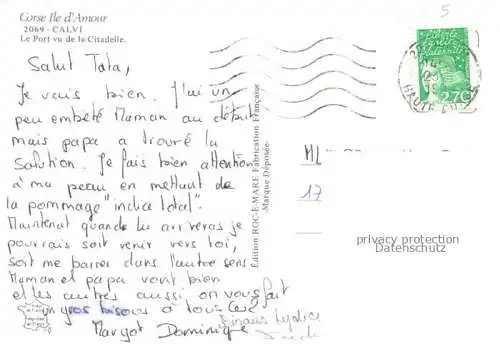 Corse Ile d'Amour
2069 - CALVI
Le Port vu de la Citadelle.
5
Salut Tata,
Je vais bien. J'ai un
peu embêté Maman au début
mais papa a trouvé la
solution. Je fais bien attention
à ma peau en mettant de
la pommage "indice total".
Maintenat quand tu arriveras je
pourrais soit venir vers toi,
soit me barrer dans l'autre sens.
Maman et papa vont bien
et les autres aussi on vous fait
un gros bisous à tous
Margot Dominique
Bisous
Edition ROC-E-MARE Fabrication Française
-Marque Déposée-
2,70
HAUTE
ML
17
privacy protection
Datenschutz